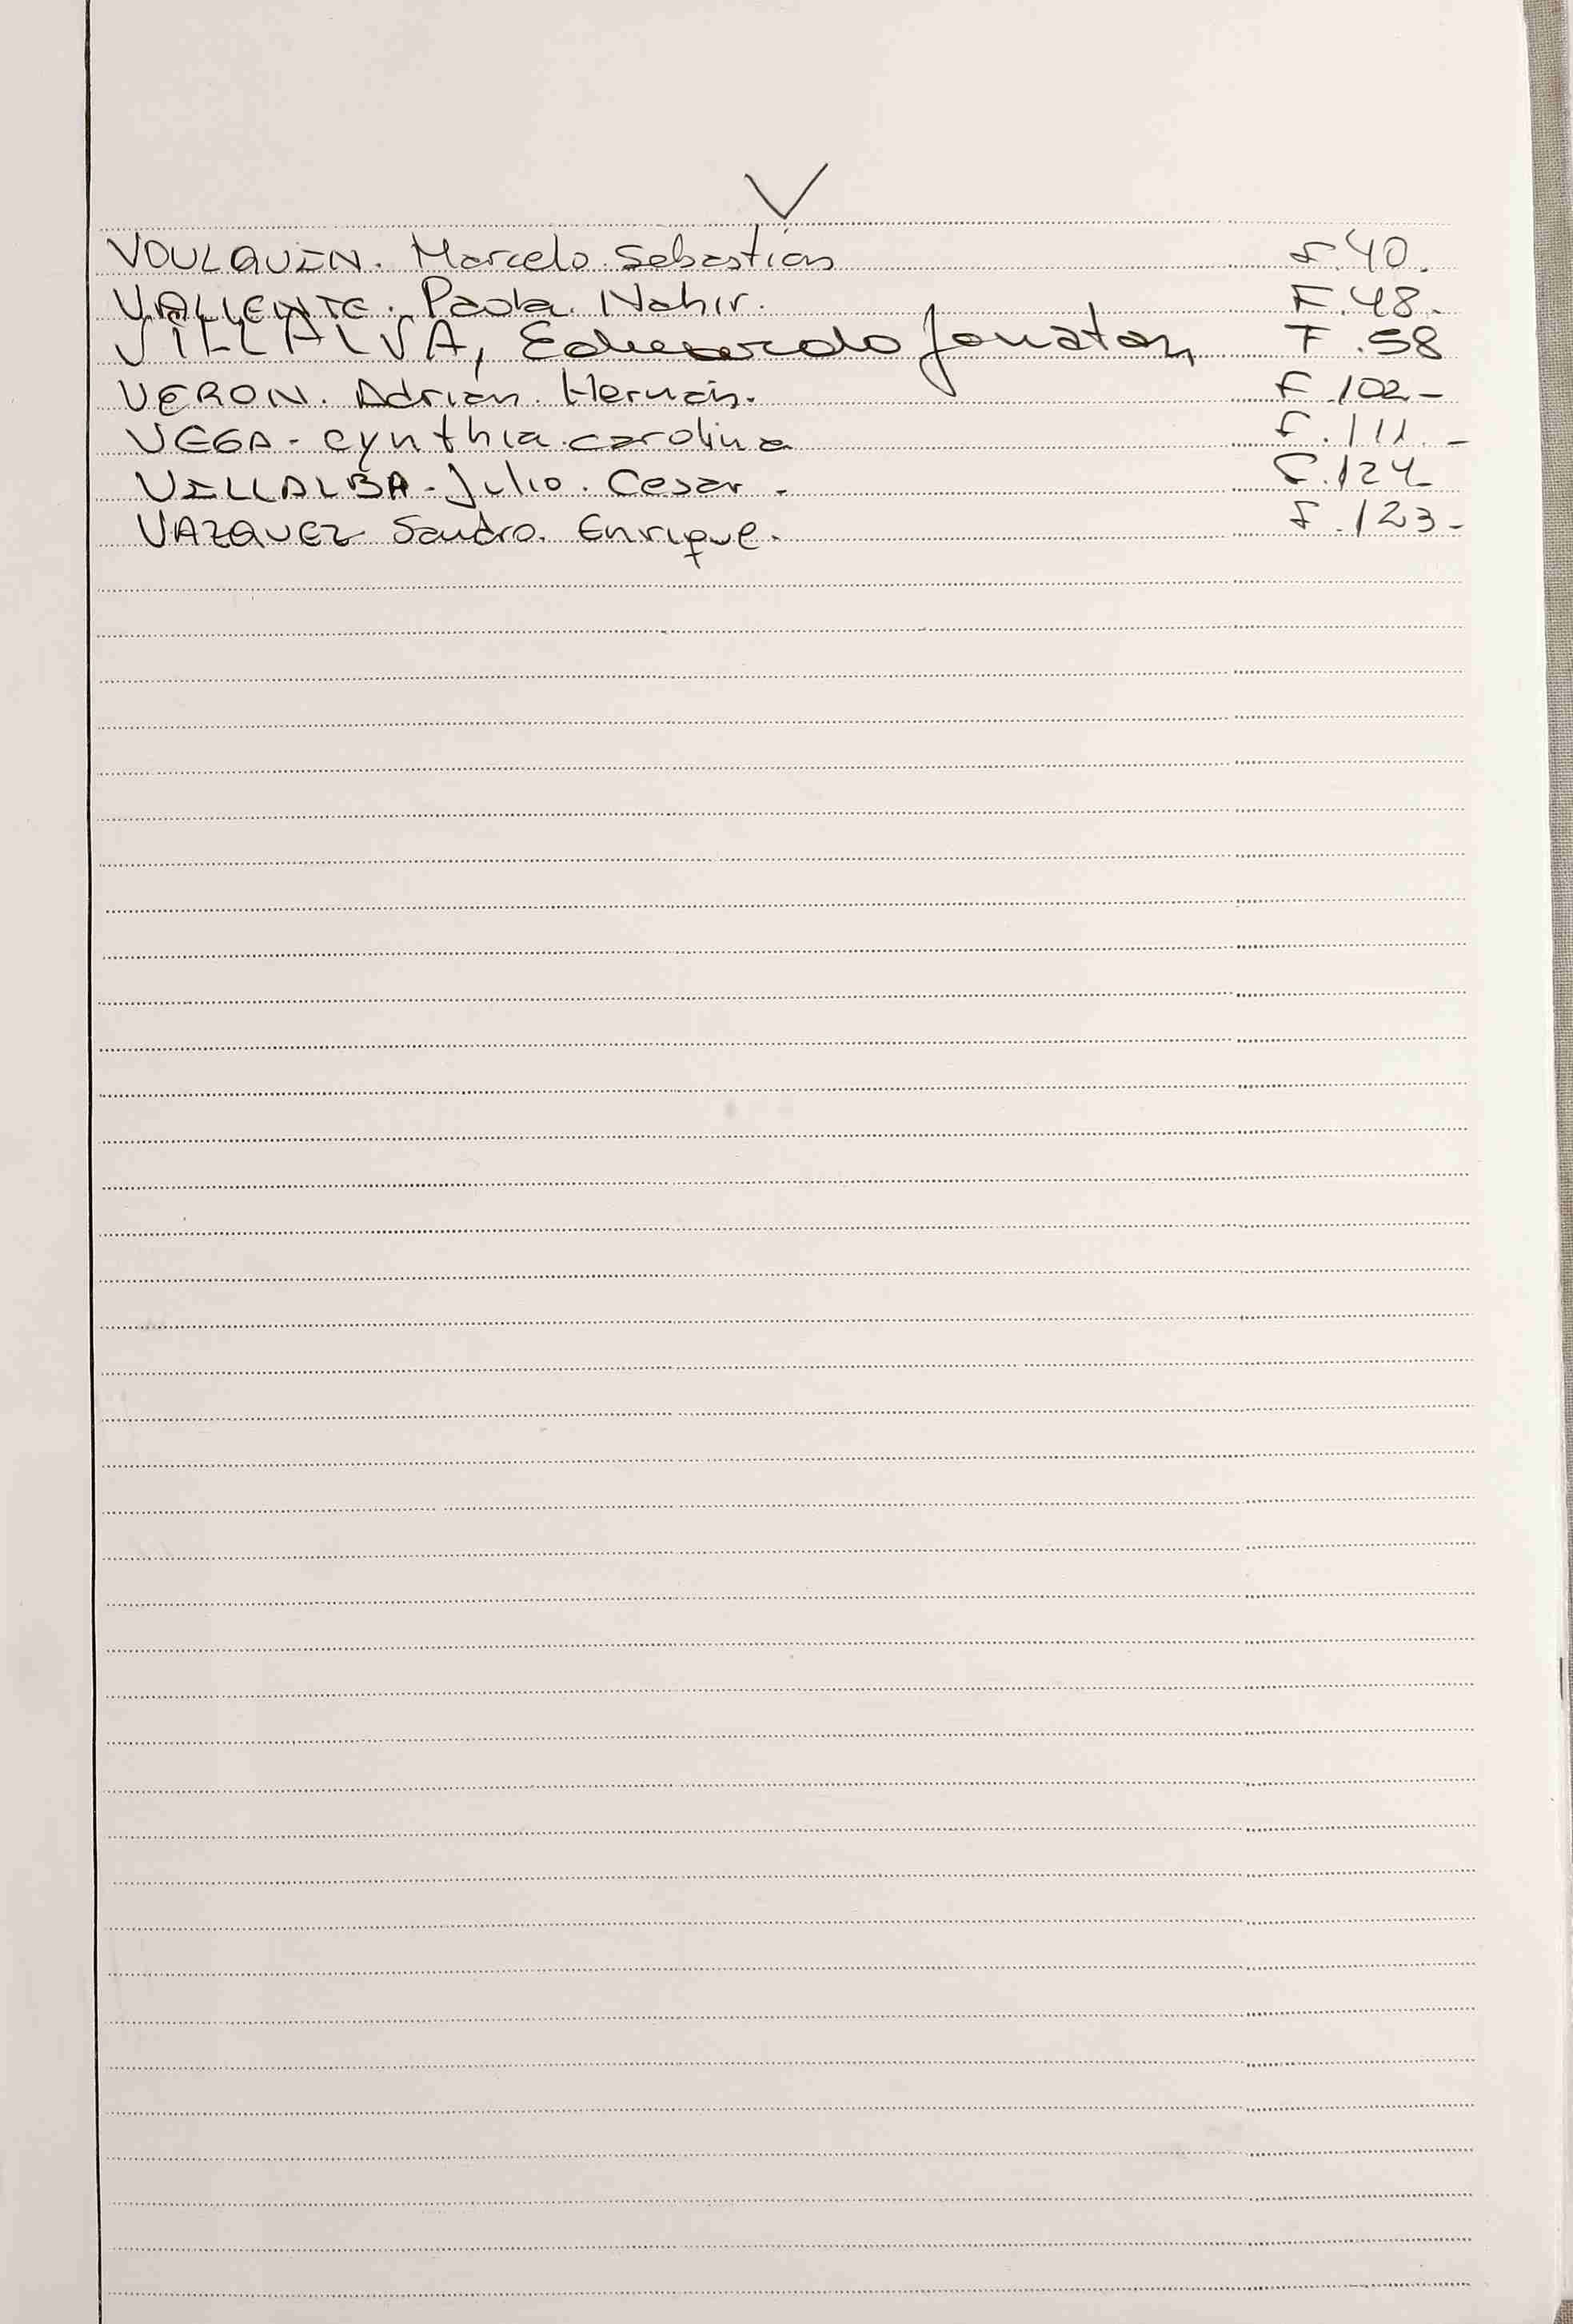 V
VOULQUIN. Marcelo Sebastián F.40.
VALLENTE. Paola Nahir. F.48.
VILLALVA, Eduardo Jonatan F.58
VERON. Adrián. Hernán. F.102-
VEGA - Cynthia carolina F.111.-
VILLALBA - Julio. Cesar - F.124
VAZQUEZ Sandro. Enrique. F.123-